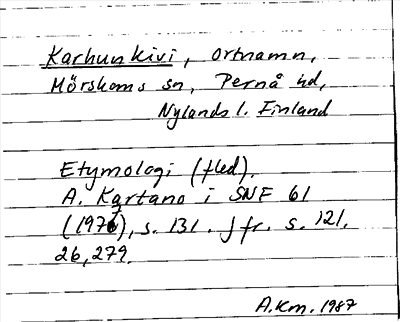 Karhunkivi, ortnamn,
Mörskoms sn, Pernå hd,
Nylands l. Finland
Etymologi (fled).
A. Kartano i SNF 61
(1976), s. 131. Jfr. s. 121,
26, 279.
A.Km. 1987